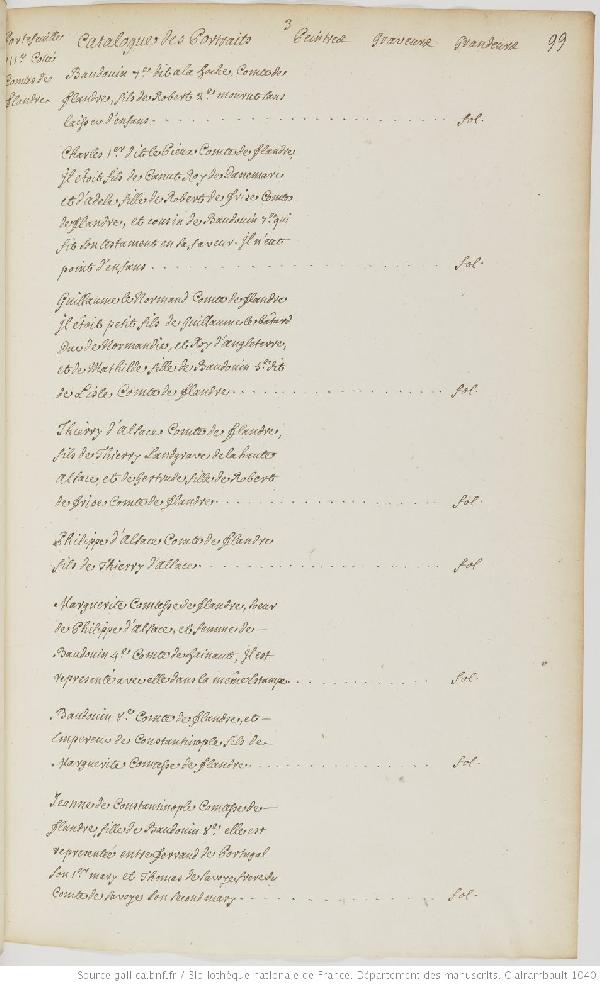 3
Portefeuille Catalogue des Portraits Peintre Graveure Grandeure 99
11e Cotté
Comtes de
flandre
Baudouin 7e. dit a la hache, Comte de
flandre, fils de Robert 2e. mourut sans
laisser d'enfans. fol.
Charles 1er. dit le Pieux Comte de flandre,
Il étoit fils de Canut Roy de Danemarc
et d'adele, fille de Robert de frise Comte
de flandre, et cousin de Baudouin 7e. qui
fit son testament en sa faveur. Il n'eut
point d'enfans fol.
Guillaume le Normand Comte de flandre
Il étoit petit fils de Guillaume le bâtard
Duc de Normandie, et Roy d'angleterre,
et de Mathilde, fille de Baudouin 5e. dit
de Lisle Comte de flandre fol.
Thierry d'alsace Comte de flandre,
fils de Thierry Landgrave de la haute
alsace, et de Gertrude, fille de Robert
de frise Comte de flandre fol.
Philippe d'alsace Comte de flandre
fils de Thierry d'allace fol
Marguerite Comtesse de flandre, soeur
de Philippe d'alsace, et femme de
Baudouin 4e. Comte de hainaut, Il est
representé avec elle dans la même Estampe. fol.
Baudouin 8e. Comte de flandre, et
Empereur de Constantinople, fils de
Marguerite Comtesse de flandre fol.
Jeanne de Constantinople Comtesse de
flandre, fille de Baudouin 8e. elle est
representée entre ferrand de Portugal
son 1er. mary et Thomas de savoye, frere du
Comte de savoye son second mary fol.
Source gallica.bnf.fr / Bibliothèque nationale de France. Département des manuscrits. Clairambault 1040